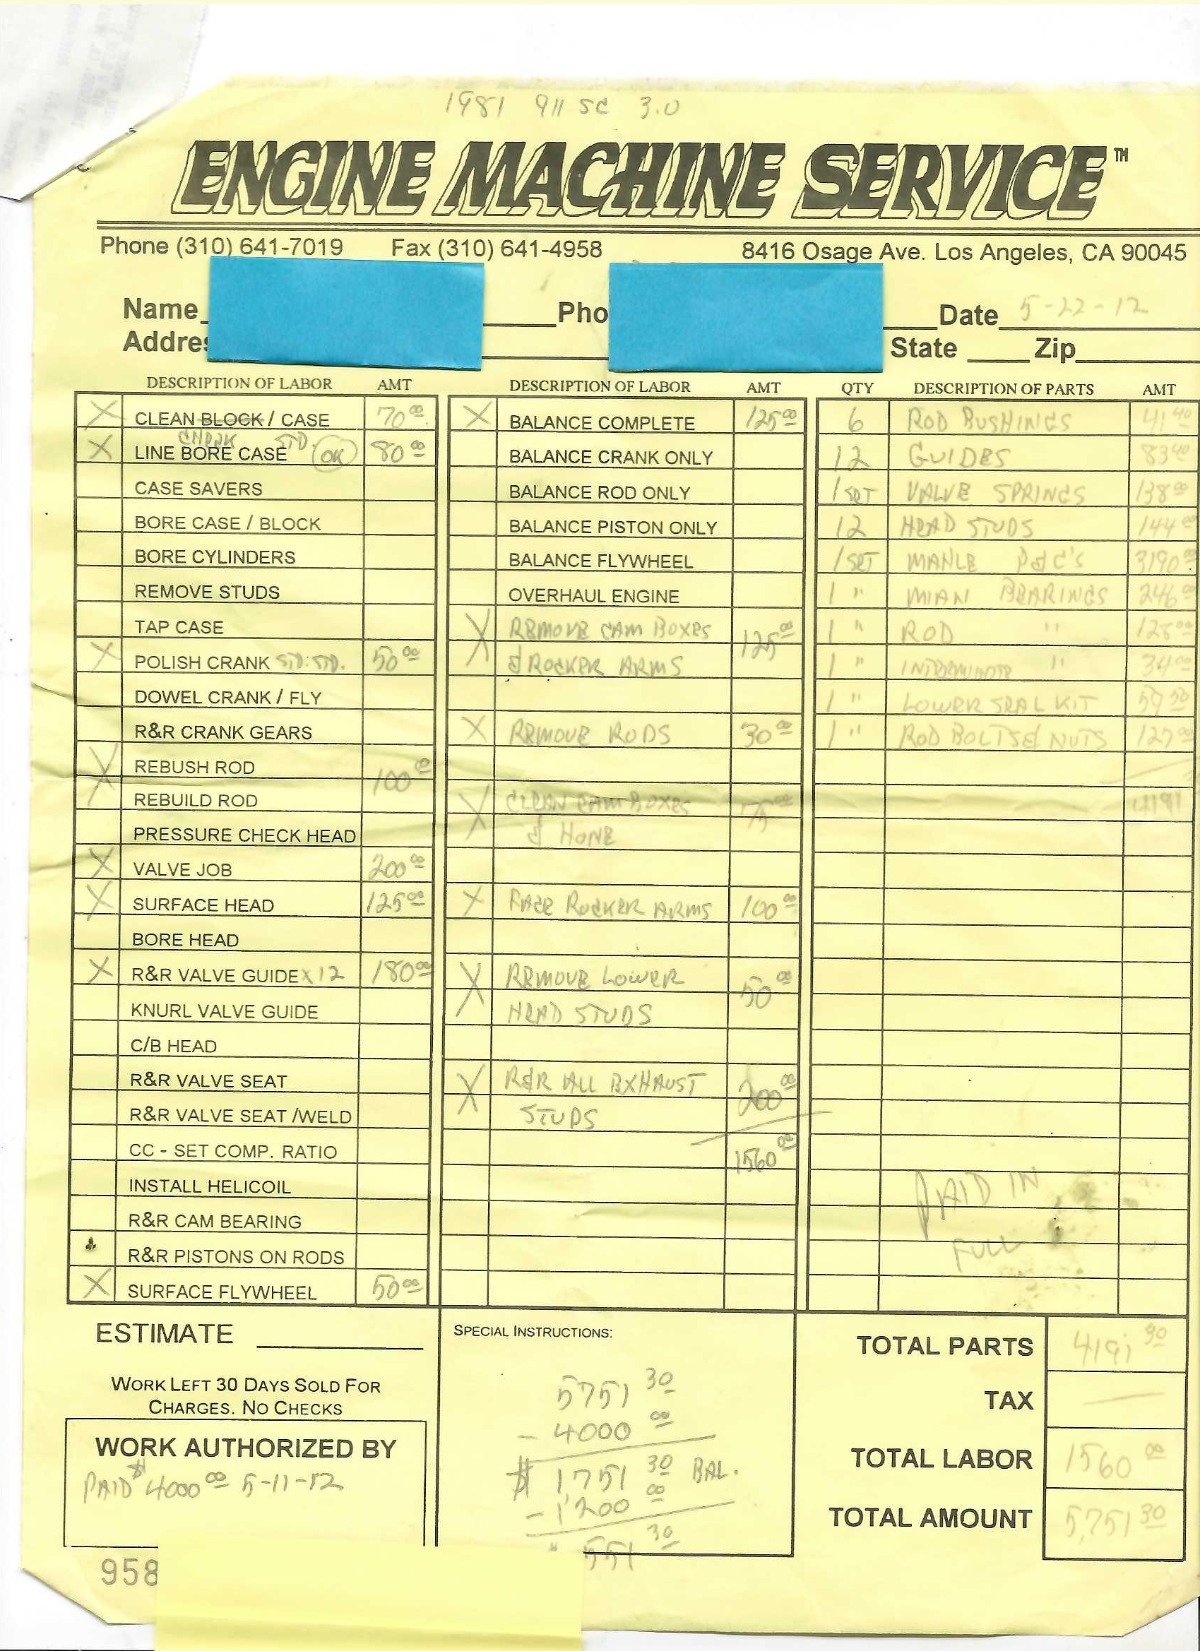 1981 911 SC 3.0
ENGINE MACHINE SERVICE™
Phone (310) 641-7019 Fax (310) 641-4958 8416 Osage Ave. Los Angeles, CA 90045
Name Pho Date 5-22-12
Addre State Zip
DESCRIPTION OF LABOR AMT
X CLEAN BLOCK / CASE 70 00
CHECK STD.
X LINE BORE CASE OK 80 00
CASE SAVERS
BORE CASE / BLOCK
BORE CYLINDERS
REMOVE STUDS
TAP CASE
X POLISH CRANK STD. STD. 50 00
DOWEL CRANK / FLY
R&R CRANK GEARS
X REBUSH ROD 100 00
REBUILD ROD
PRESSURE CHECK HEAD
X VALVE JOB 200 00
X SURFACE HEAD 125 00
BORE HEAD
X R&R VALVE GUIDE X12 180 00
KNURL VALVE GUIDE
C/B HEAD
R&R VALVE SEAT
R&R VALVE SEAT /WELD
CC - SET COMP. RATIO
INSTALL HELICOIL
R&R CAM BEARING
R&R PISTONS ON RODS
X SURFACE FLYWHEEL 50 00
DESCRIPTION OF LABOR AMT
X BALANCE COMPLETE 125 00
BALANCE CRANK ONLY
BALANCE ROD ONLY
BALANCE PISTON ONLY
BALANCE FLYWHEEL
OVERHAUL ENGINE
X REMOVE CAM BOXES 125 00
& ROCKER ARMS
X REMOVE RODS 30 00
X CLEAN CAM BOXES 75 00
& HONE
X FACE ROCKER ARMS 100 00
X REMOVE LOWER 50 00
HEAD STUDS
X R&R ALL EXHAUST 200 00
STUDS
1560 00
QTY DESCRIPTION OF PARTS AMT
6 ROD BUSHINGS 41 40
12 GUIDES 83 40
1 SET VALVE SPRINGS 138 00
12 HEAD STUDS 144 00
1 SET MAHLE P&C'S 3190 00
1 " MIAN BEARINGS 246 00
1 " ROD " 128 00
1 " INTERMIDIATE " 34 00
1 " LOWER SEAL KIT 59 50
1 " ROD BOLTS & NUTS 127 00
4191
PAID IN
FULL
ESTIMATE
WORK LEFT 30 DAYS SOLD FOR
CHARGES. NO CHECKS
WORK AUTHORIZED BY
PAID $4000 00 5-11-12
958
SPECIAL INSTRUCTIONS:
5751 30
- 4000 00
$ 1751 30 BAL.
- 1200 00
551 30
TOTAL PARTS 4191 30
TAX —
TOTAL LABOR 1560 00
TOTAL AMOUNT 5,751 30